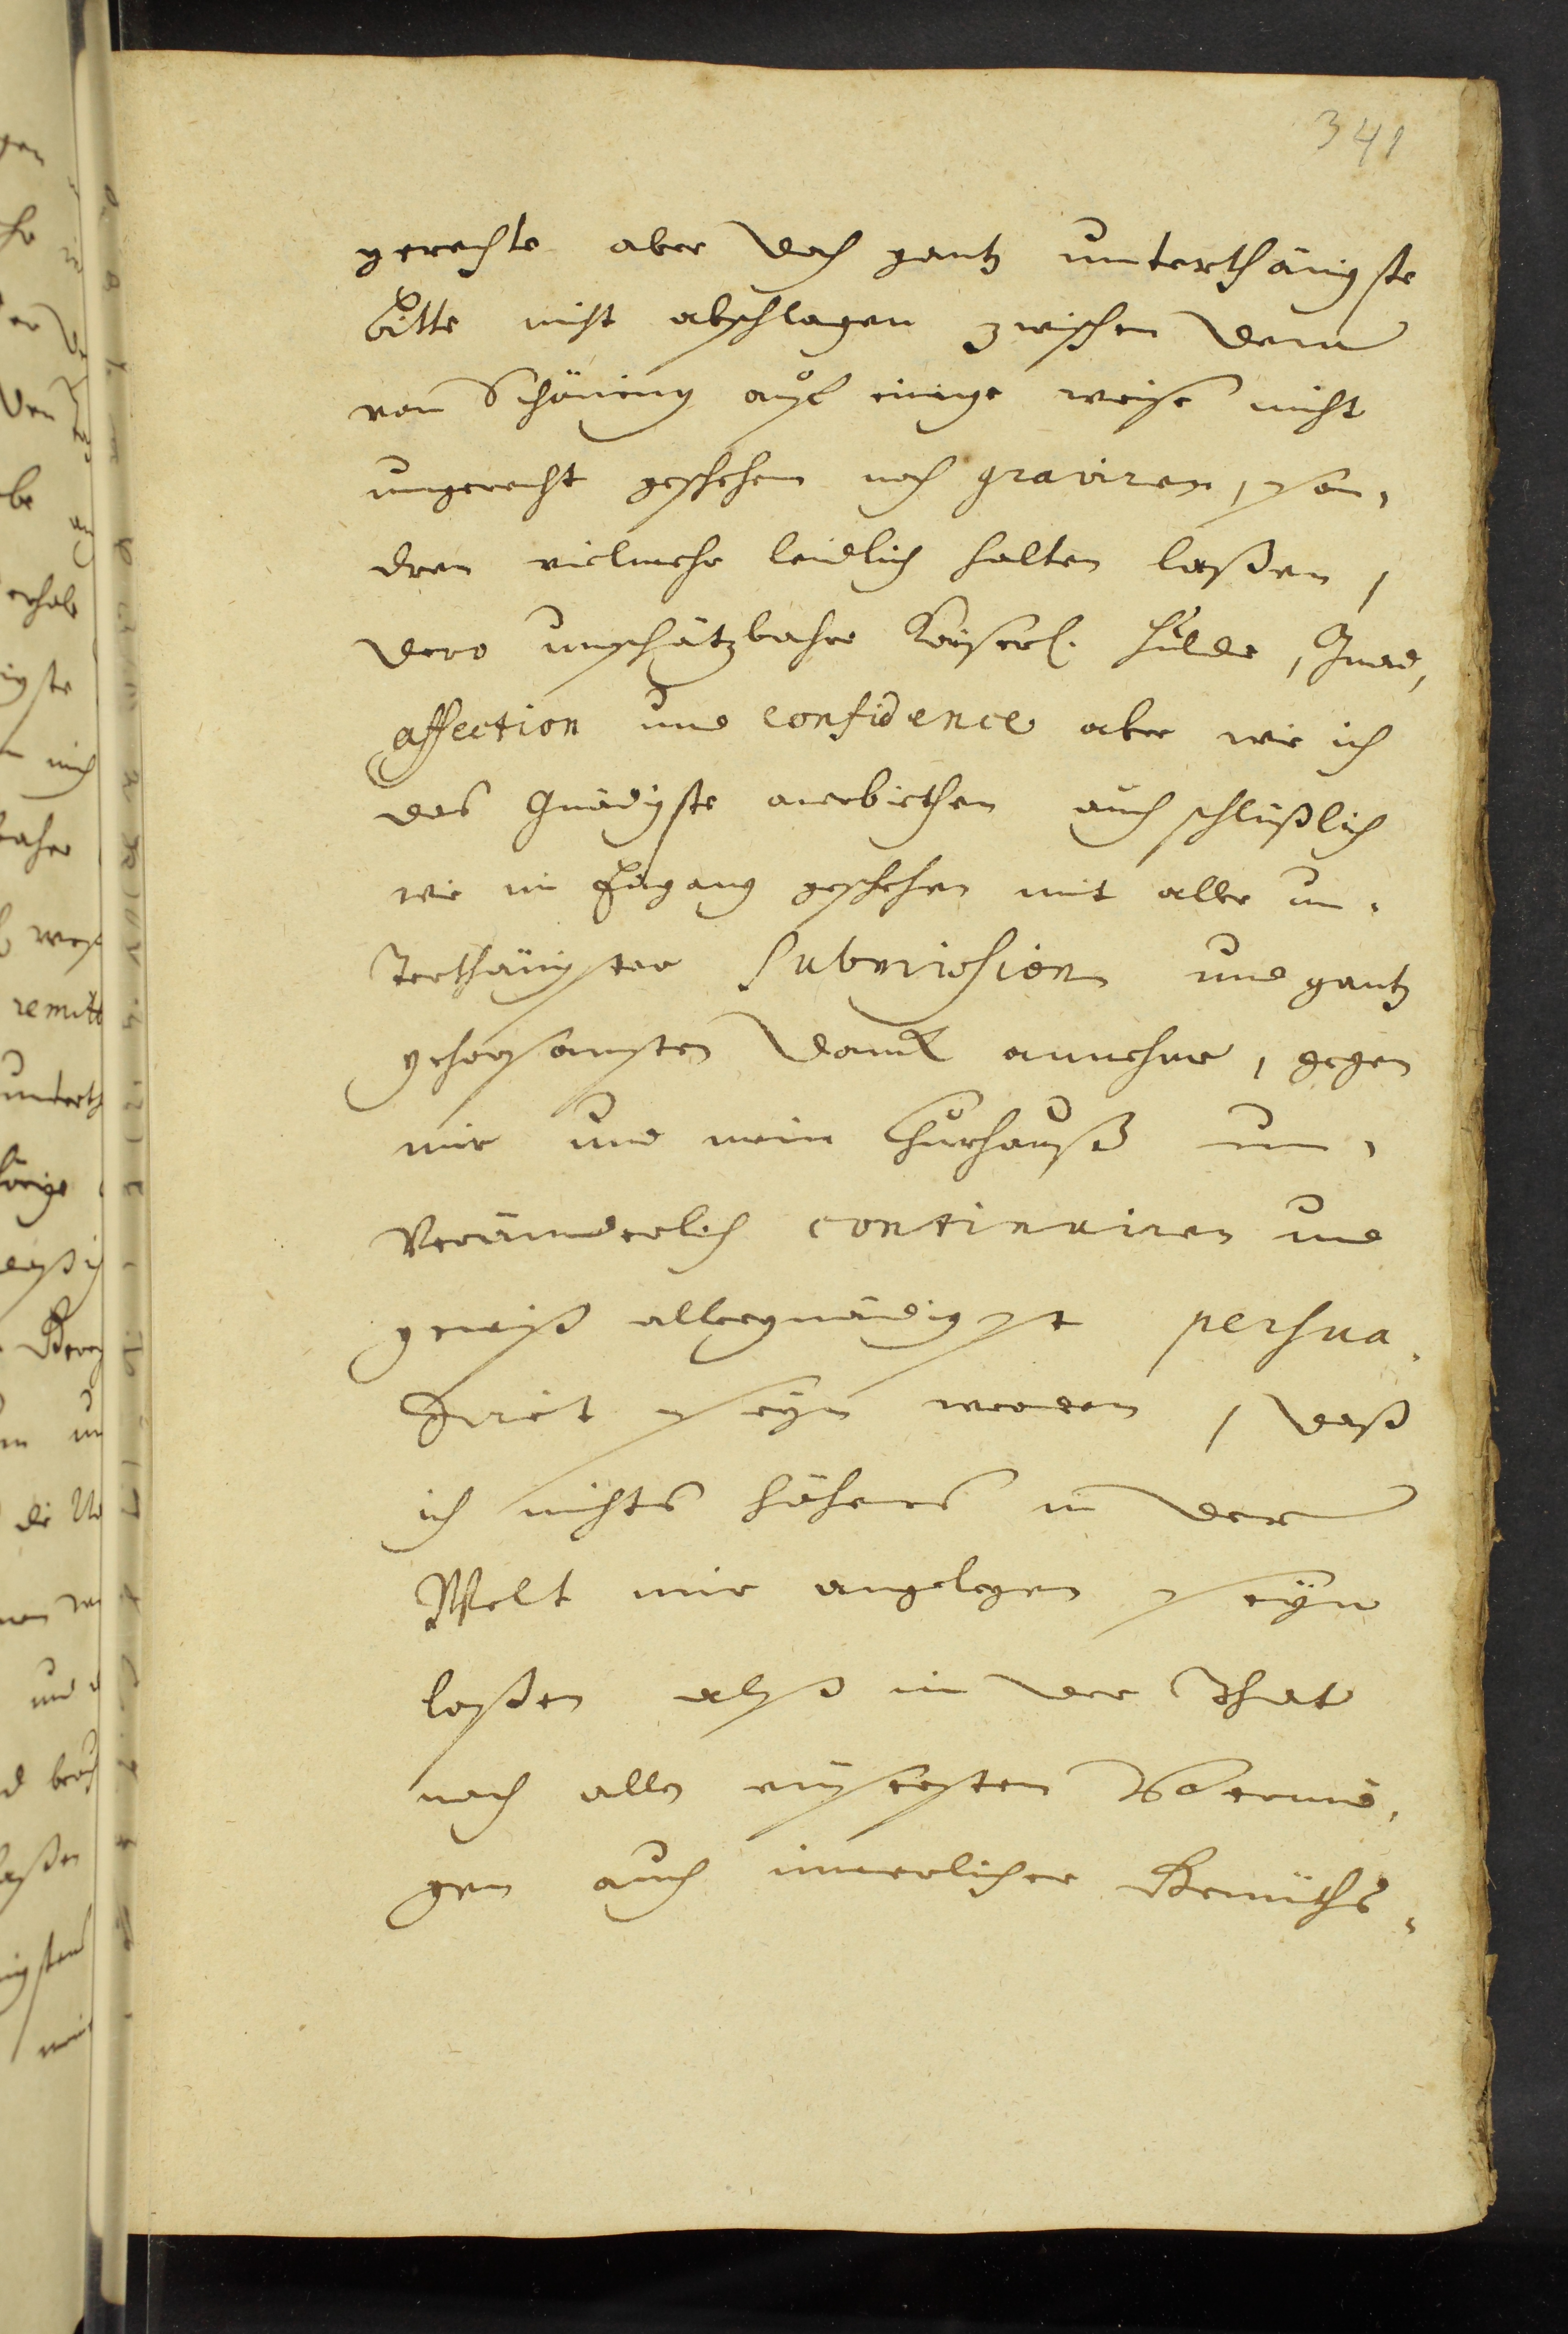 341
gerechte aber doch gantz unterthänigste
Bitte nicht abschlagen zwischen dem
von Schöning auf einige weise nicht
ungerecht geschehen noch graviren, son¬
dern vielmehr leidlich halten laßen,
dero unschätzbahre Kayserl. Hulde, Gnad,
affection und confidence aber wie ich
das Gnädigste anerbiethen auch schlüßlich
wie im Eingang geschehen mit aller un¬
terthänigster Submission und gantz
gehorsamsten Danck annehme, gegen
mir und mein Churhauß un¬
veränderlich continuiren und
gewiß allergnädigst persua¬
diret seyn werden, daß
ich nichts höhers in der
Welt mir angelegen seyn
laßen alß in der That
nach allen eusersten Vermö¬
gen auch innerlicher Gemüths¬